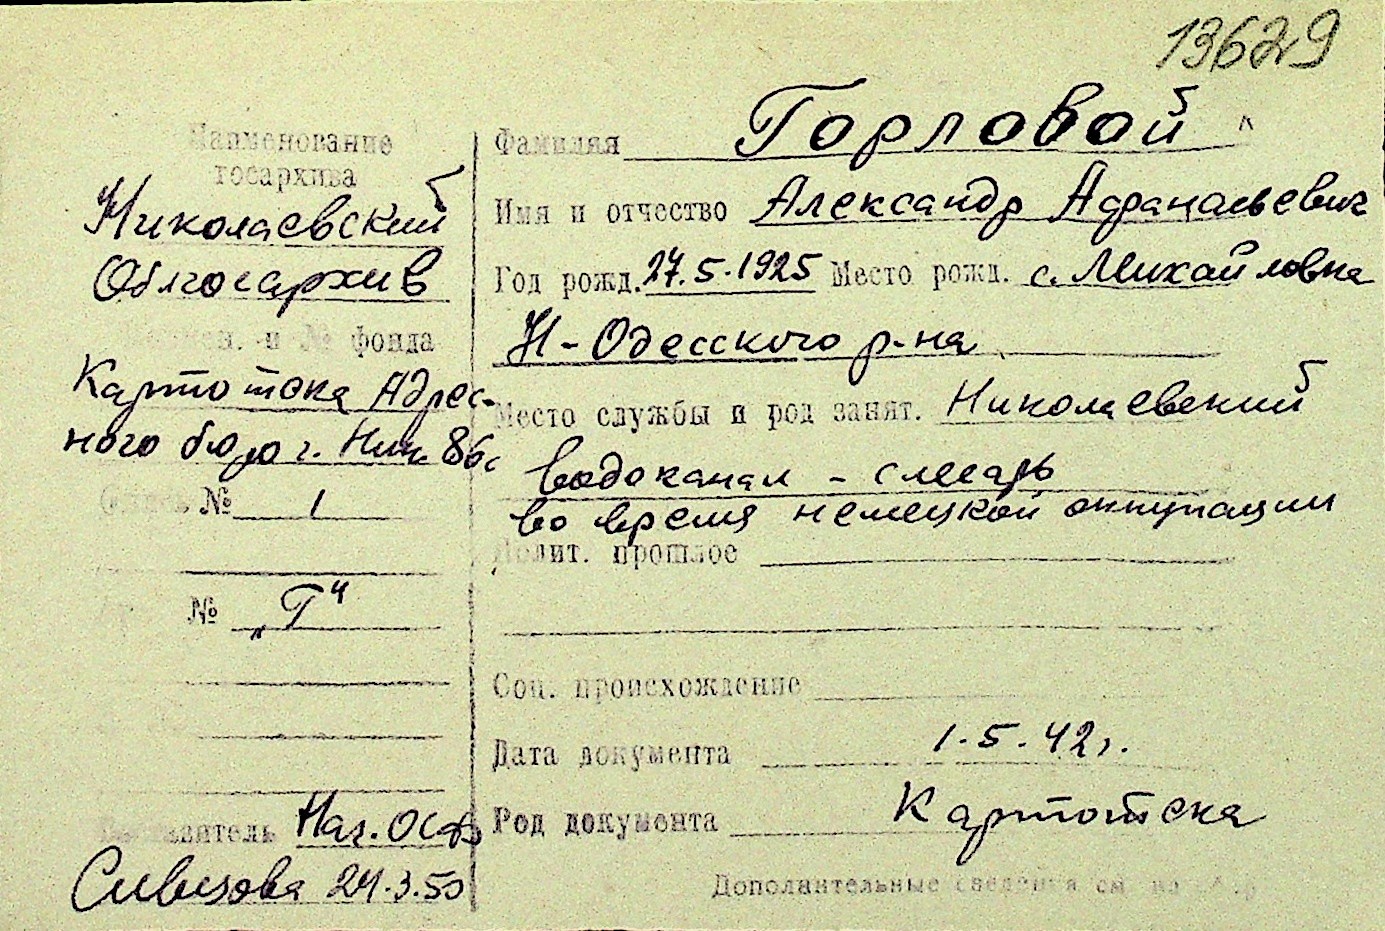 13629
Наименование
госархива
Николаевский
Облгосархив
и № фонда
Картотека Адрес-
ного бюро г. Ник.
Опись № 1
№ „Г"
Составитель Нач. ОСФ
24.3.50
Фамилия Горловой
Имя и отчество Александр
Год рожд. 27.5.1925 Место рожд. с. Михайловка
Н-Одесского р-на
Место службы и род занят. Николаевский
водоканал - слесарь
во время немецкой оккупации
Полит. прошлое
Соц. происхождение
Дата документа 1.5.42г.
Род документа Картотека
Дополнительные сведения см. на